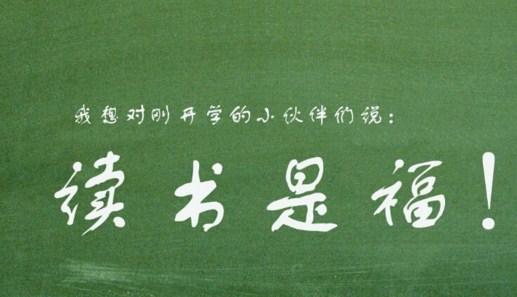 我想对刚开学的小伙伴们说:
读书是福!